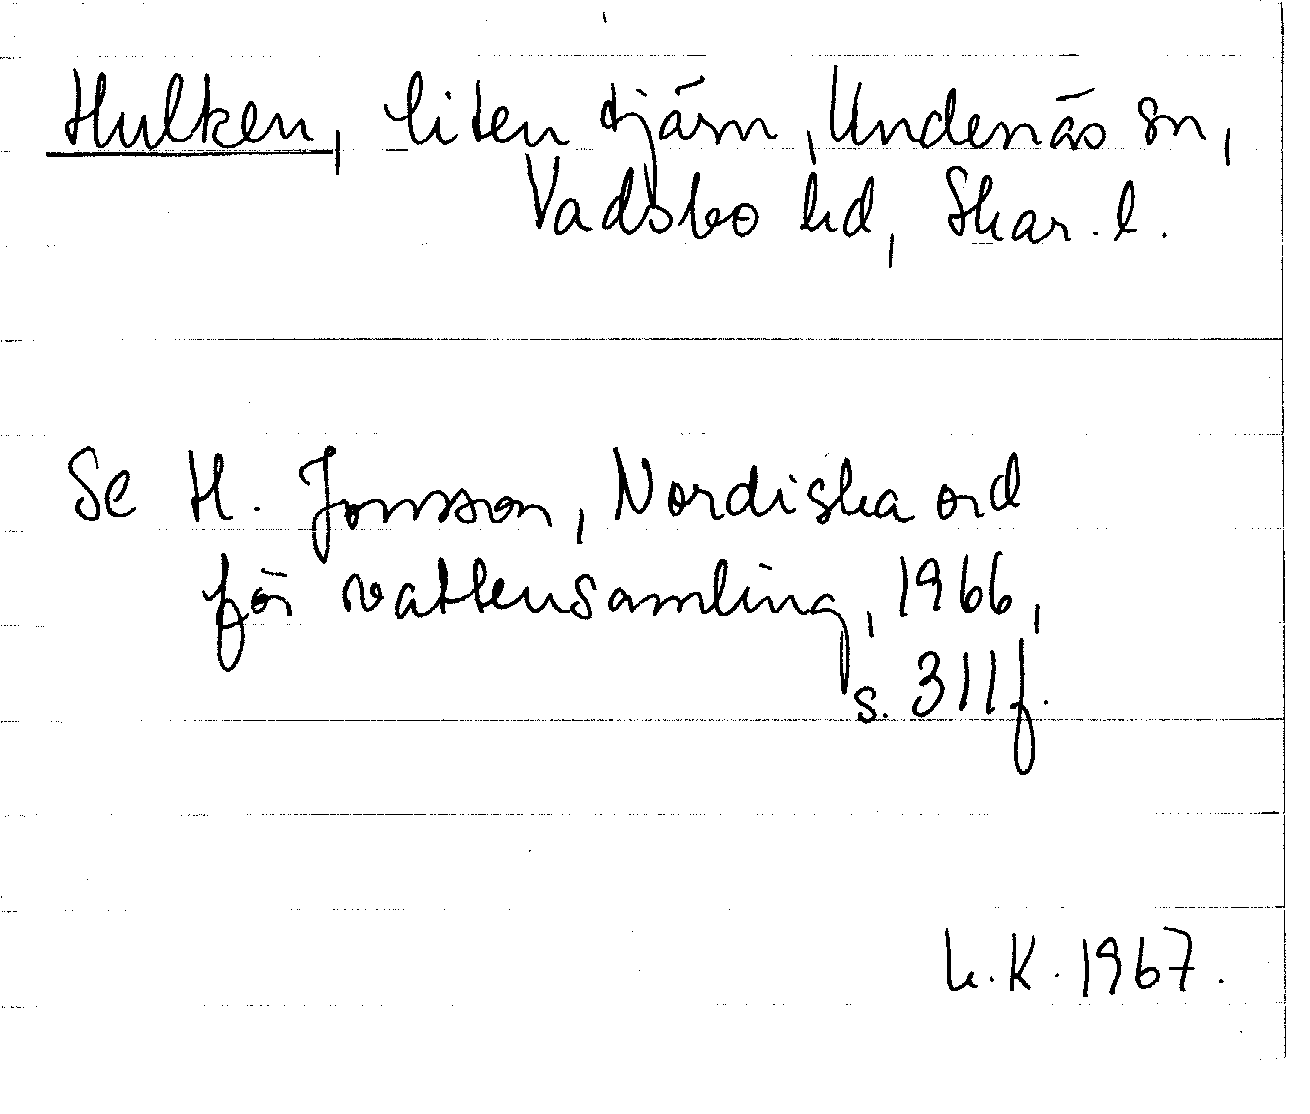 Hulken, liten tjärn, Undenäs sn,
Vadsbo hd, Skar. l.
Se H. Jonsson, Nordiska ord
för vattensamling, 1966,
s. 311f.
L.K. 1967.